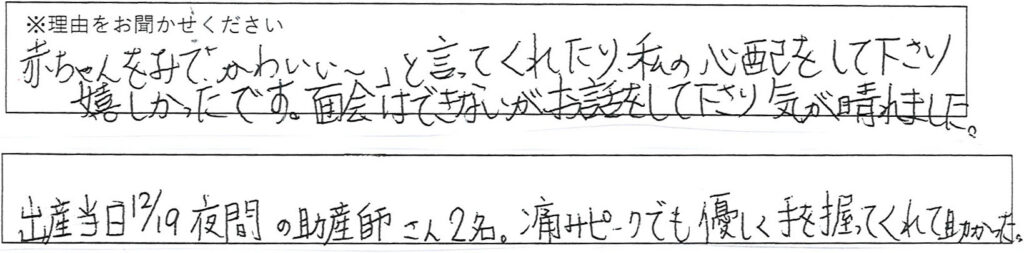 ※理由をお聞かせください
赤ちゃんをみて「かわいい〜」と言ってくれたり、私の心配をして下さり
嬉しかったです。面会はできないがお話をして下さり気が晴れました。
出産当日12/19夜間の助産師さん2名。痛みピークでも優しく手を握ってくれて助かった。